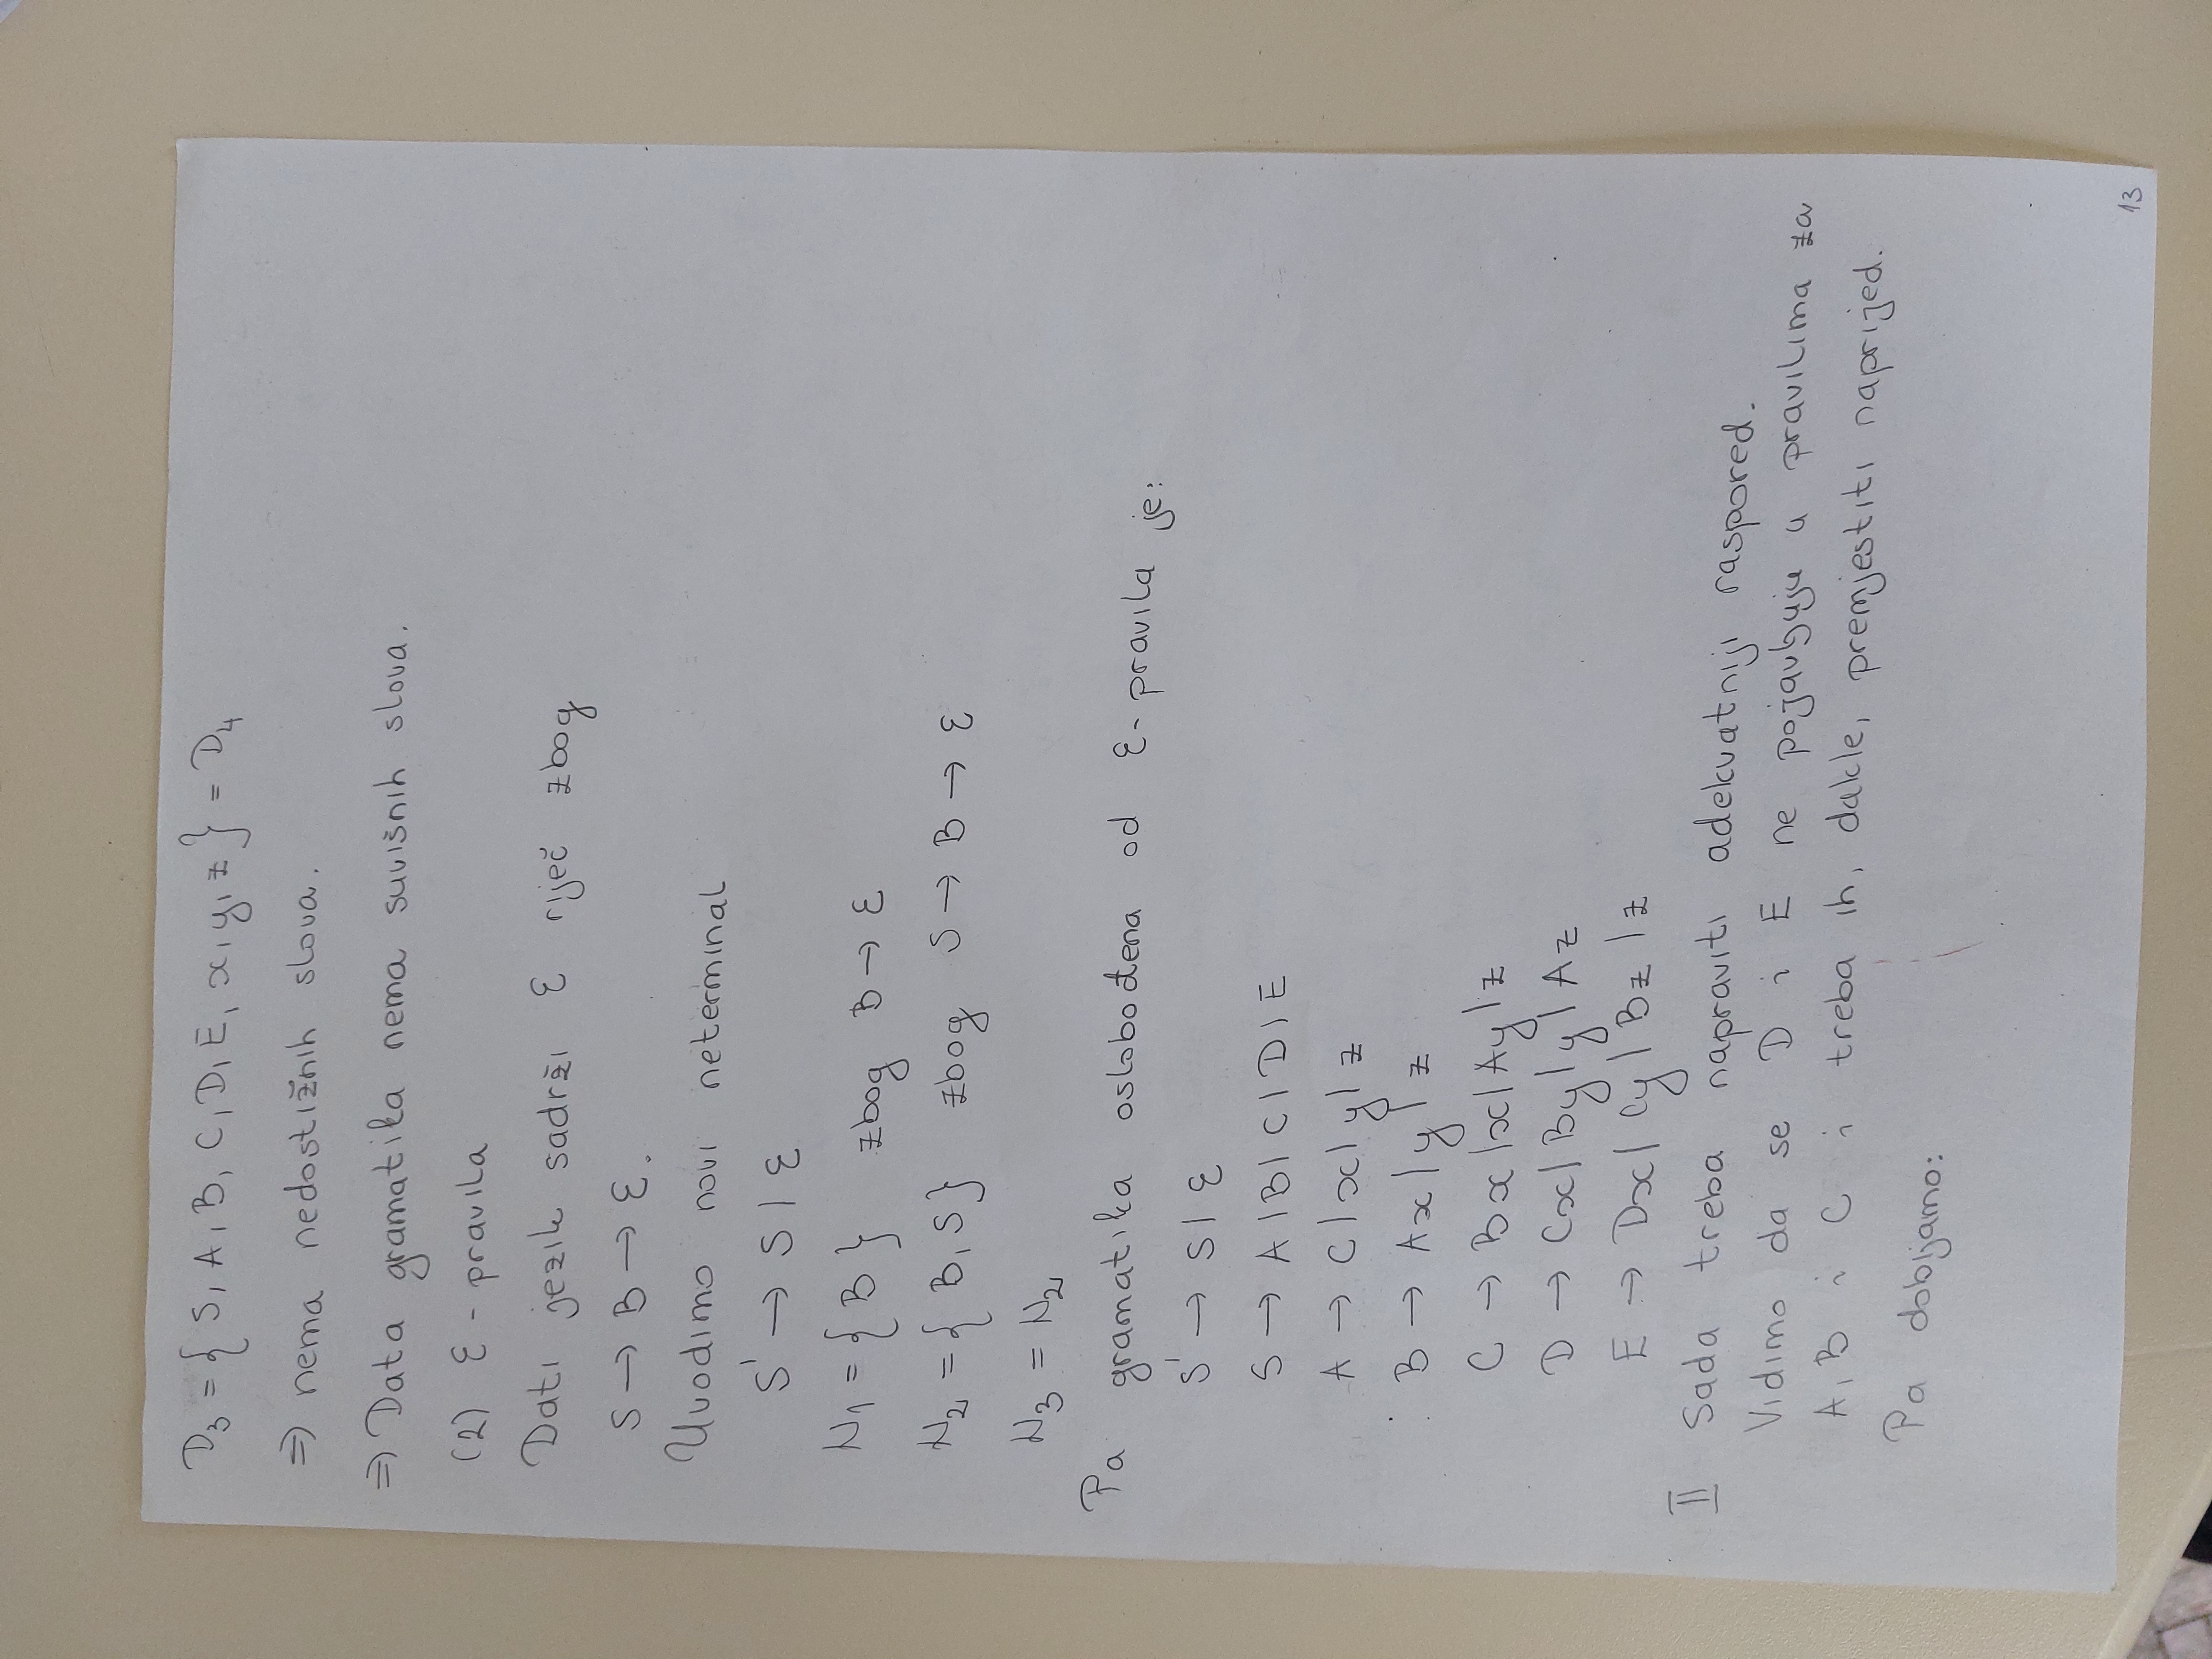 D₃ = { S, A, B, C, D, E, x, y, z } = D₄
⇒ nema nedostižnih slova.
⇒ Data gramatika nema suvišnih slova.
(2) ε - pravila
Dati jezik sadrži ε riječ zbog
S → B → ε.
Uvodimo novi neterminal
S' → S | ε
N₁ = { B } zbog B → ε
N₂ = { B, S } zbog S → B → ε
N₃ = N₂
Pa gramatika oslobođena od ε- pravila je:
S' → S | ε
S → A | B | C | D | E
A → C | x | y | z
B → Ax | y | z
C → Bx | x | Ay | z
D → Cx | By | y | Az
E → Dx | Cy | Bz | z
II Sada treba napraviti adekvatniji raspored.
Vidimo da se D i E ne pojavljuju u pravilima za
A, B i C i treba ih, dakle, premjestiti naprijed.
Pa dobijamo:
13